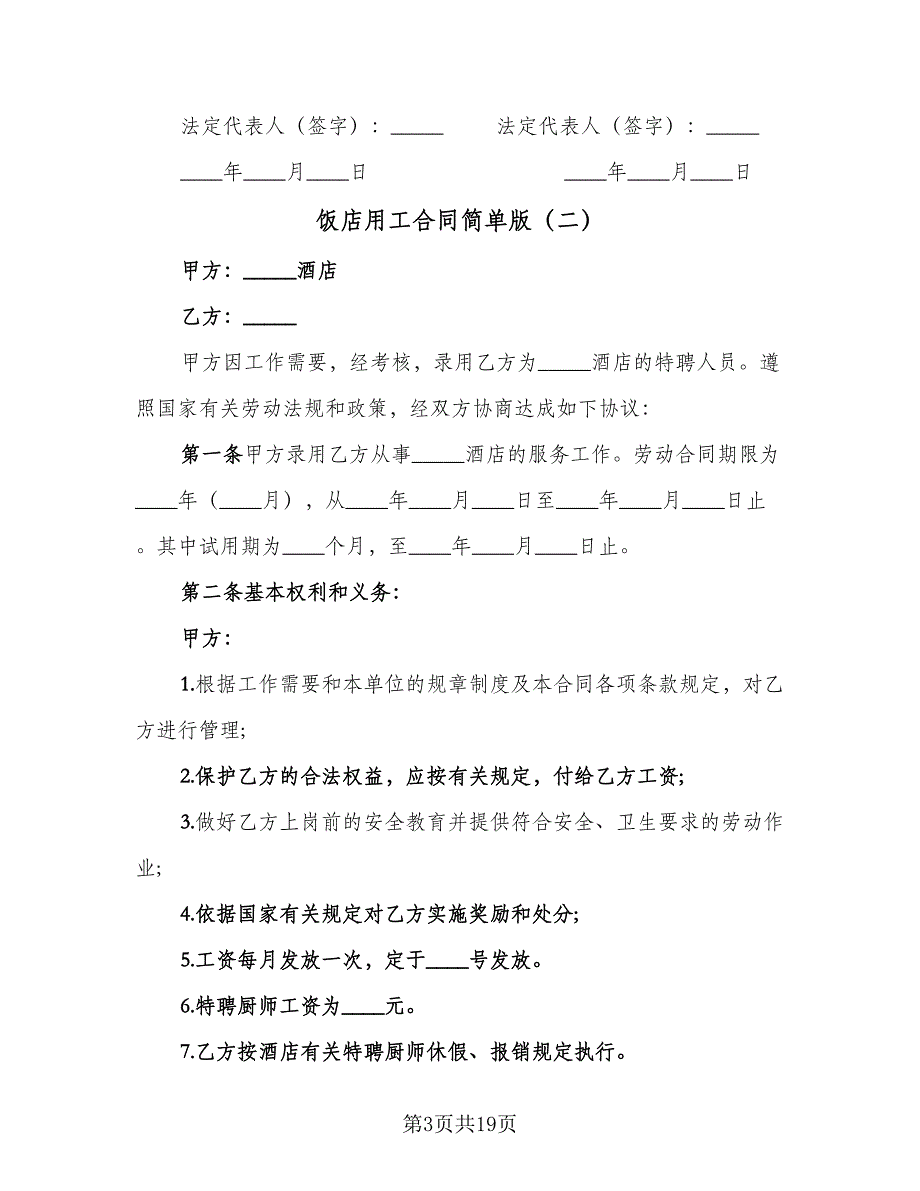 法定代表人（签字）：_____ 法定代表人（签字）：_____
____年____月____日 ____年____月____日
饭店用工合同简单版（二）
甲方：_____酒店
乙方：_____
甲方因工作需要，经考核，录用乙方为_____酒店的特聘人员。遵
照国家有关劳动法规和政策，经双方协商达成如下协议：
第一条甲方录用乙方从事_____酒店的服务工作。劳动合同期限为
____年（____月），从____年____月____日至____年____月____日止
。其中试用期为____个月，至____年____月____日止。
第二条基本权利和义务：
甲方：
1.根据工作需要和本单位的规章制度及本合同各项条款规定，对乙
方进行管理;
2.保护乙方的合法权益，应按有关规定，付给乙方工资;
3.做好乙方上岗前的安全教育并提供符合安全、卫生要求的劳动作
业;
4.依据国家有关规定对乙方实施奖励和处分;
5.工资每月发放一次，定于____号发放。
6.特聘厨师工资为____元。
7.乙方按酒店有关特聘厨师休假、报销规定执行。
第3页共19页